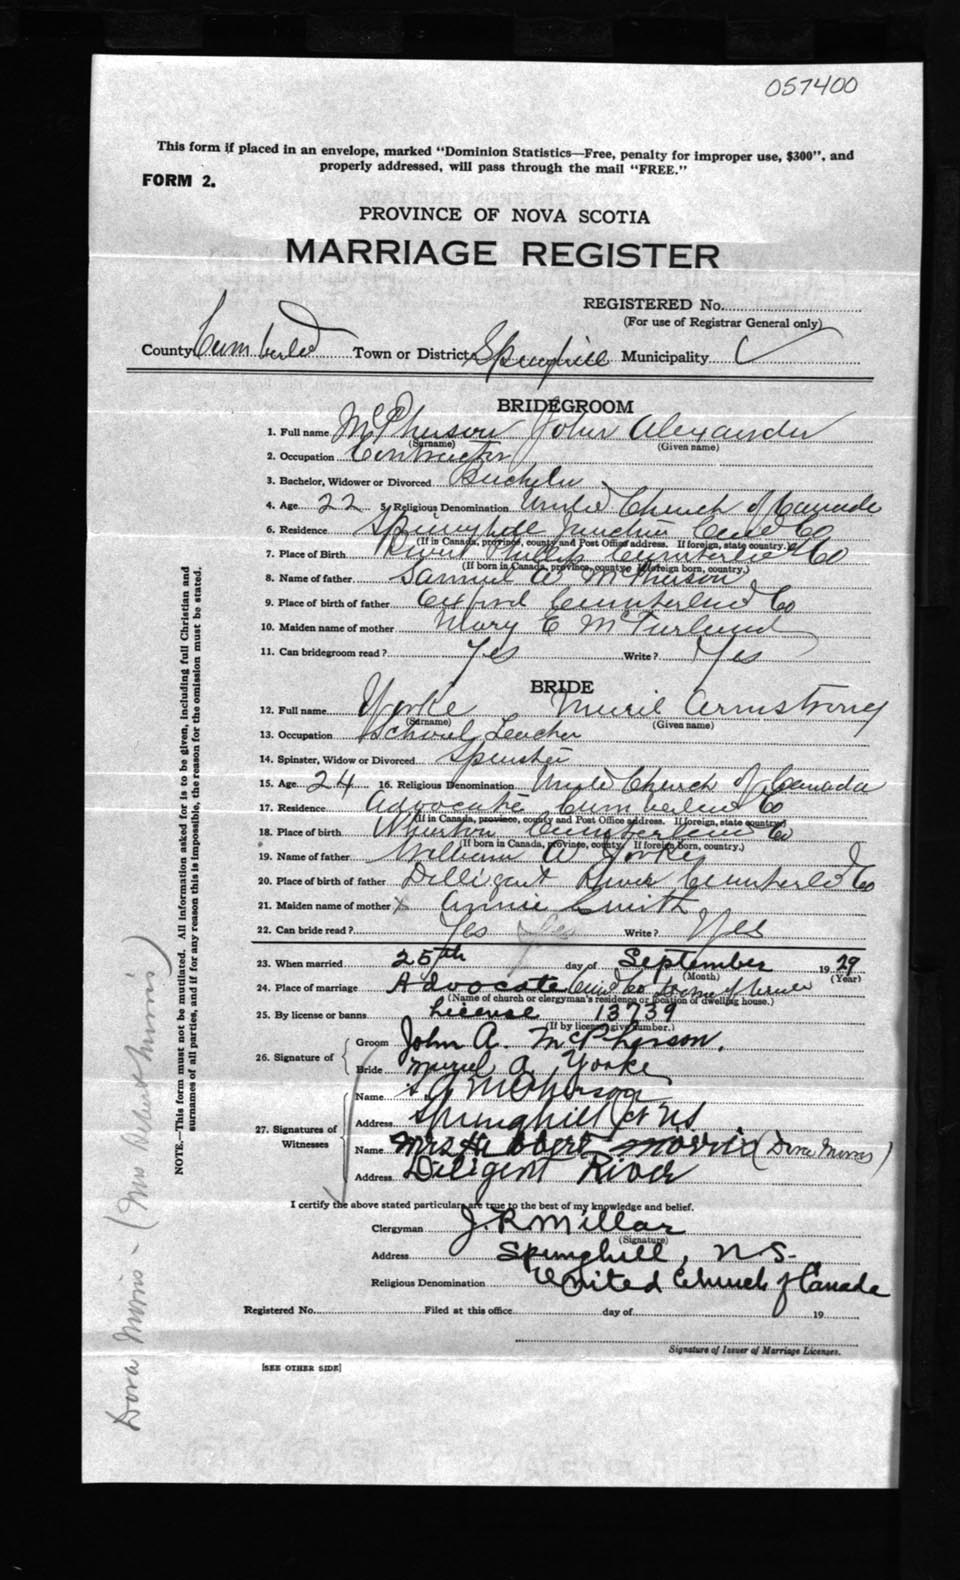 057400
This form if placed in an envelope, marked "Dominion Statistics—Free, penalty for improper use, $300", and
properly addressed, will pass through the mail "FREE."
FORM 2.
PROVINCE OF NOVA SCOTIA
MARRIAGE REGISTER
REGISTERED No.
(For use of Registrar General only)
County Cumberland Town or District Springhill Municipality
BRIDEGROOM
1. Full name McPherson John Alexander
(Surname) (Given name)
2. Occupation Contractor
3. Bachelor, Widower or Divorced Bachelor
4. Age 22 5. Religious Denomination United Church of Canada
6. Residence Springhill Junction Cumb Co
(If in Canada, province, county and Post Office address. If foreign, state country.)
7. Place of Birth River Philip Cumberland Co
(If born in Canada, province, county. If foreign born, country.)
8. Name of father Samuel A McPherson
9. Place of birth of father Oxford Cumberland Co
10. Maiden name of mother Mary E McFarland
11. Can bridegroom read? Yes Write? Yes
BRIDE
12. Full name Yorke Muriel Armstrong
(Surname) (Given name)
13. Occupation School Teacher
14. Spinster, Widow or Divorced Spinster
15. Age 24 16. Religious Denomination United Church of Canada
17. Residence Advocate Cumberland Co
(If in Canada, province, county and Post Office address. If foreign, state country)
18. Place of birth Wharton Cumberland Co
(If born in Canada, province, county. If foreign born, country.)
19. Name of father William A Yorke
20. Place of birth of father Dilligant River Cumberland Co
21. Maiden name of mother X Annie Smith
22. Can bride read? Yes Yes Write? Yes
23. When married 25th day of September 1929
(Month) (Year)
24. Place of marriage Advocate Cumb Co Home of
(Name of church or clergyman's residence or location of dwelling house.)
25. By license or banns License 13739
(If by license give number.)
26. Signature of Groom John A. McPherson.
Bride Muriel A. Yorke
27. Signatures of Witnesses
Name S A McPherson
Address Springhill Jct NS
Name Mrs Hubert Morris (Dora Morris)
Address Diligent River
I certify the above stated particulars are true to the best of my knowledge and belief.
Clergyman J. R. Millar
(Signature)
Address Springhill, N.S.
Religious Denomination United Church of Canada
Registered No. Filed at this office day of 19
Signature of Issuer of Marriage Licenses.
[SEE OTHER SIDE]
NOTE.—This form must not be mutilated. All information asked for is to be given, including full Christian and
surnames of all parties, and if for any reason this is impossible, the reason for the omission must be stated.
Dora Morris - (Mrs Hubert Morris)